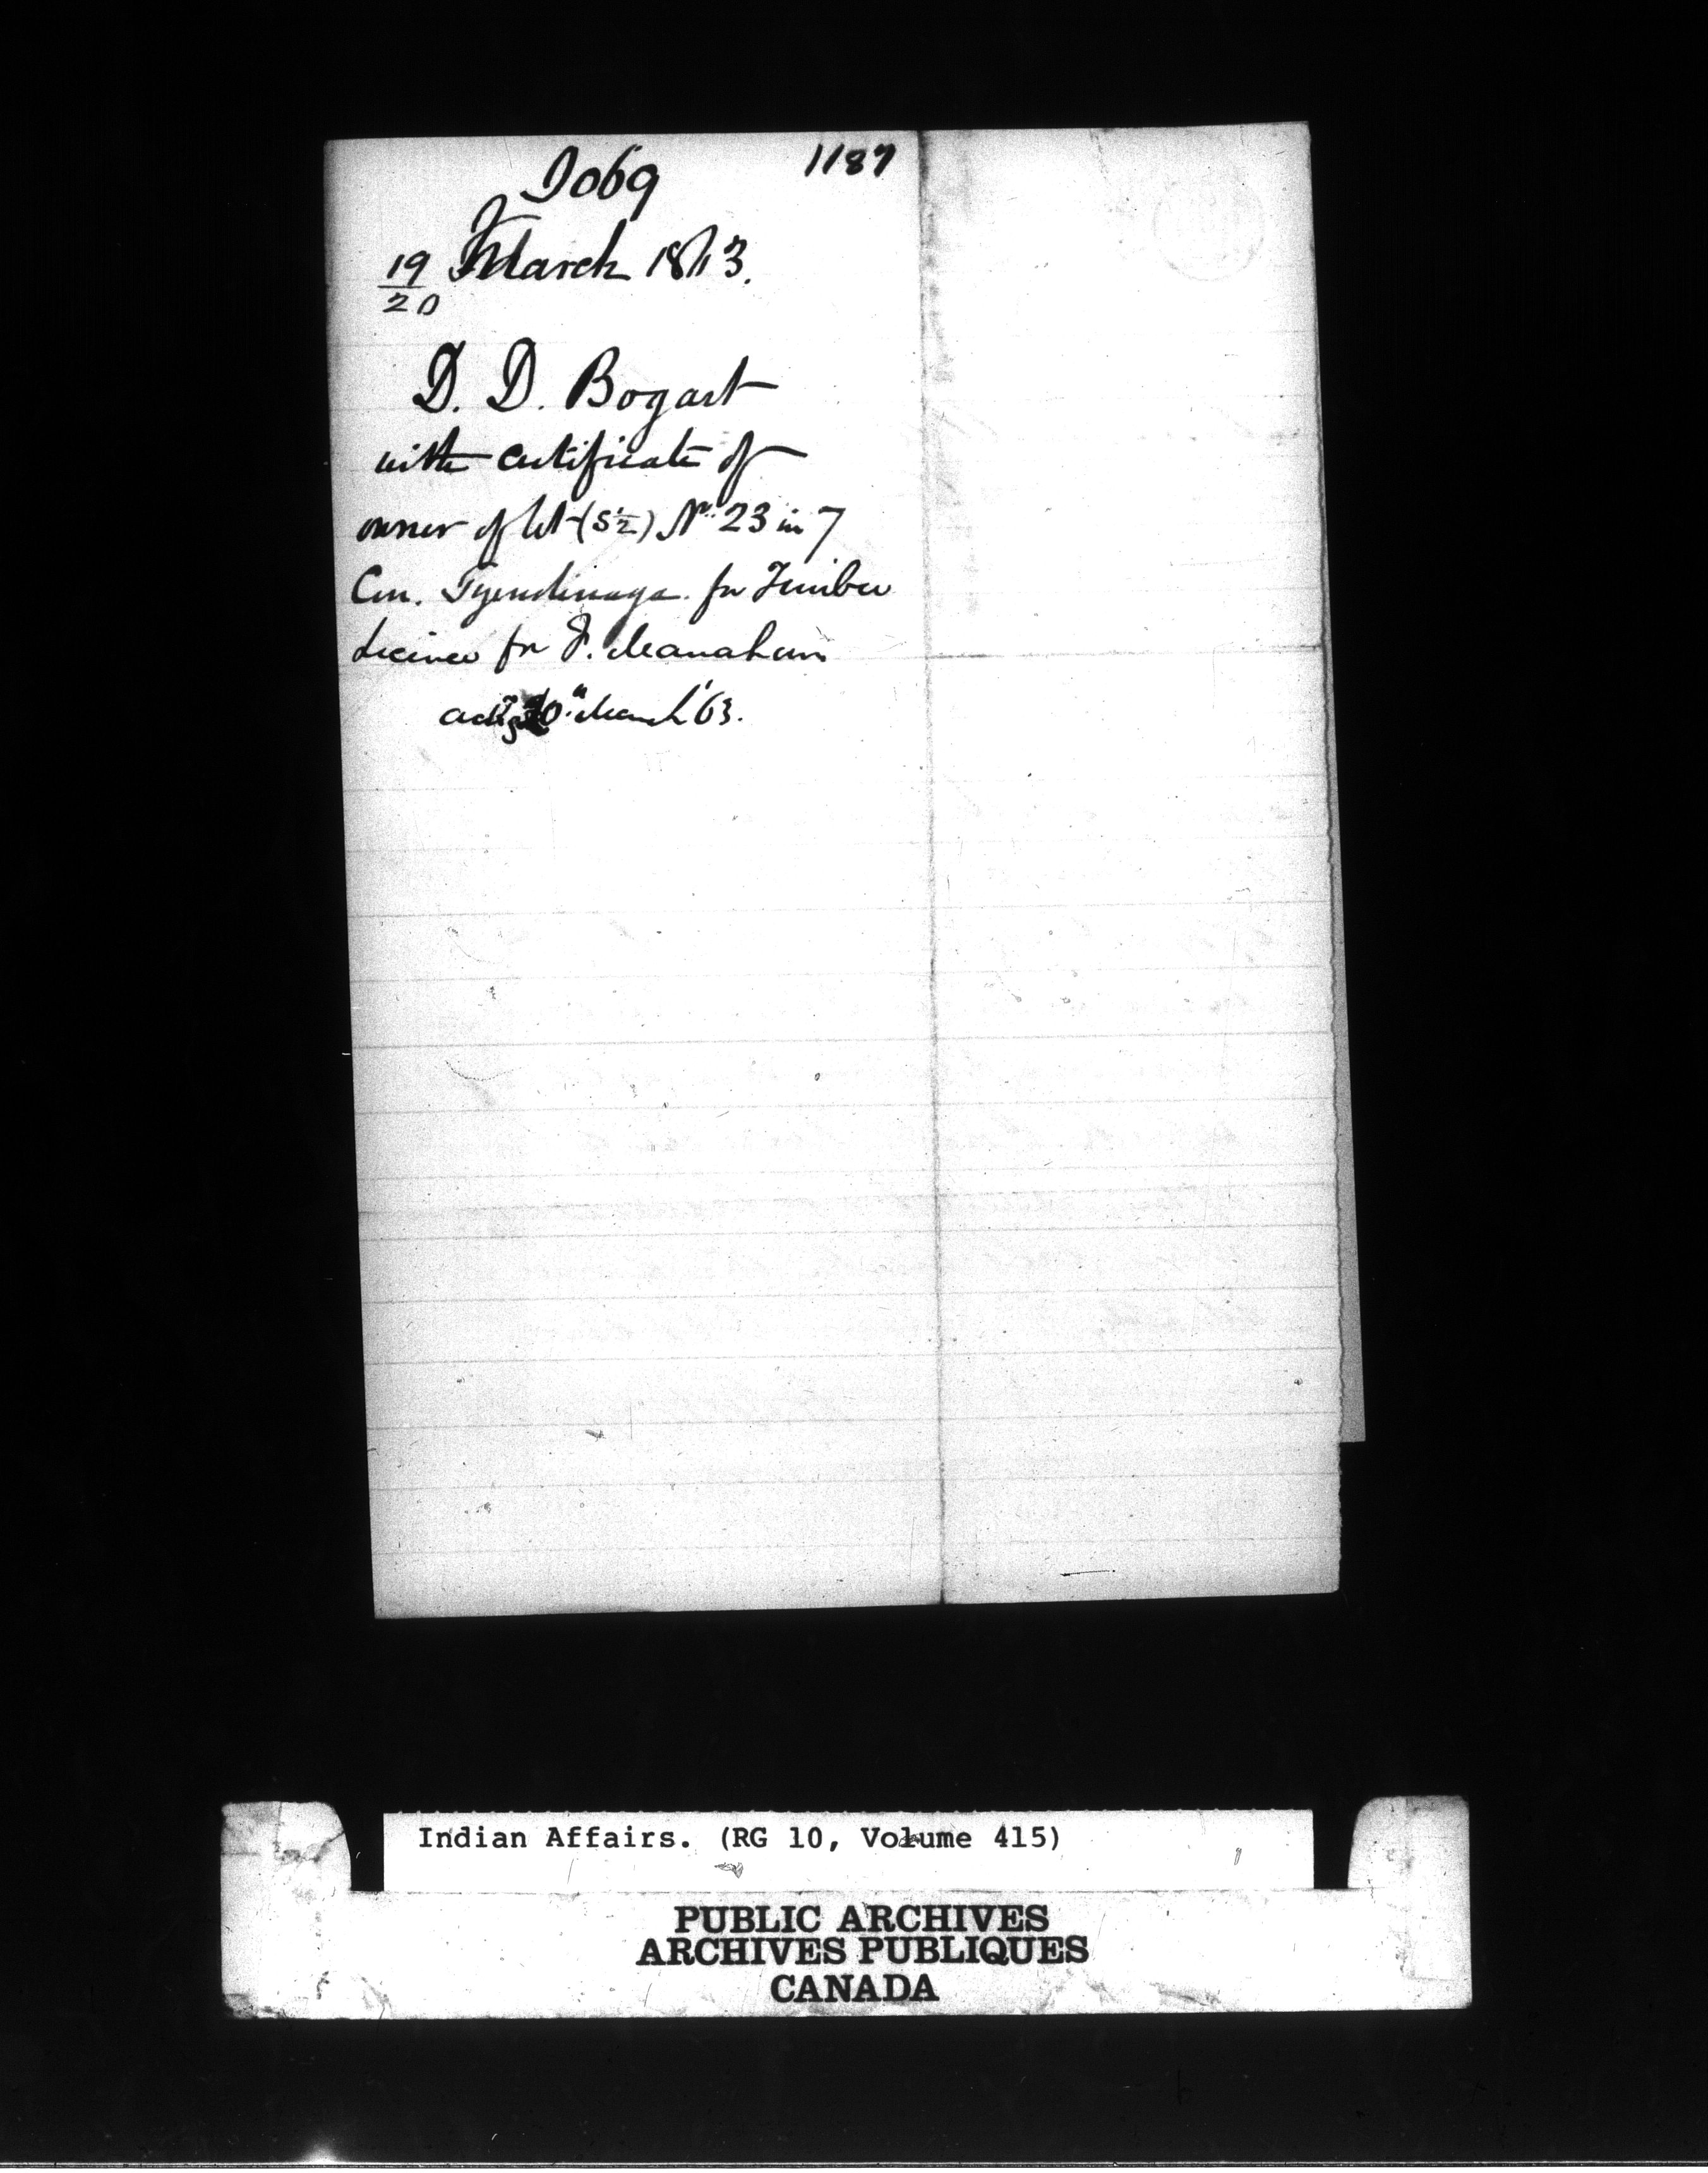 1187
J069
19/20 March 1863.
D. D. Bogart
with certificate of
owner of lot (S ½) No. 23 in 7
Con. Tyendinaga for Timber
Licence for F. Manahan
ackd 20" March '63.
Indian Affairs. (RG 10, Volume 415)
PUBLIC ARCHIVES
ARCHIVES PUBLIQUES
CANADA